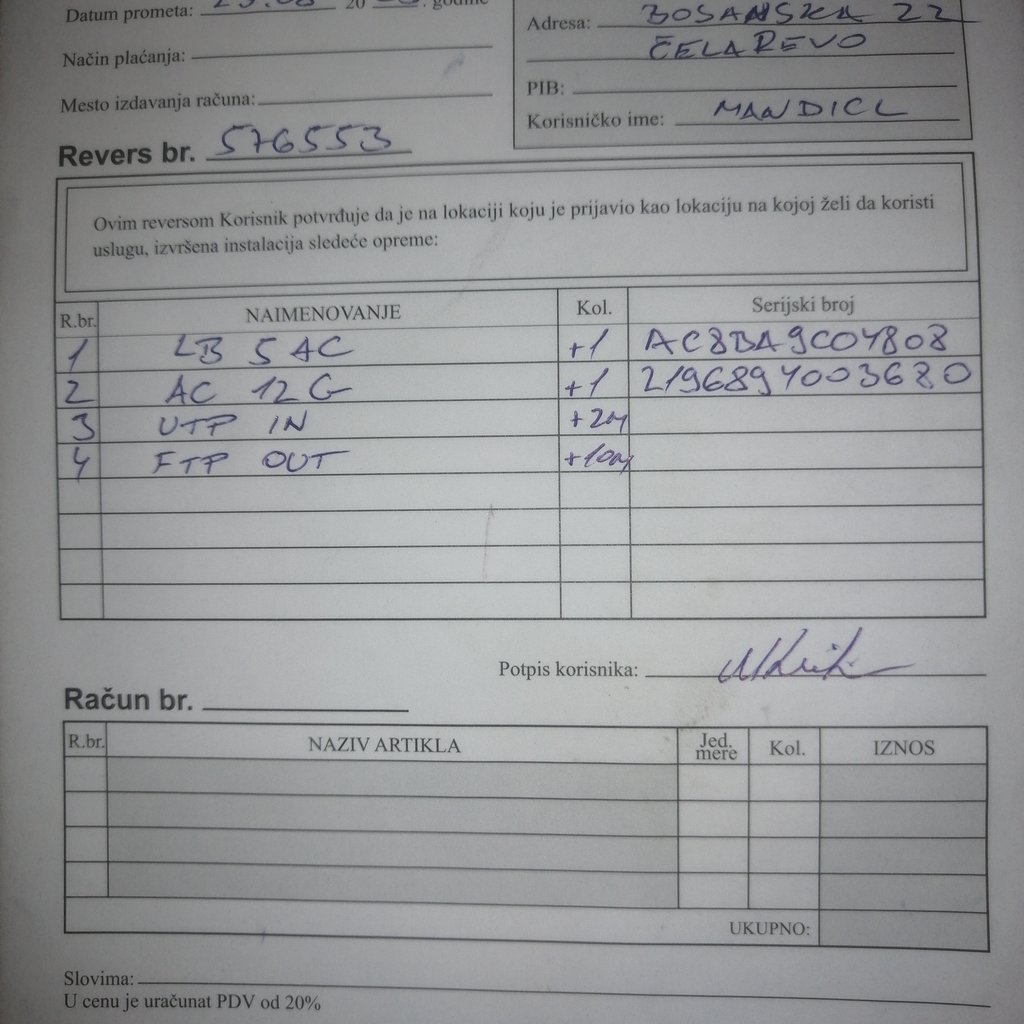 Datum prometa: 20 godine
Adresa: BOSANSKA 22
ČELAREVO
Način plaćanja:
PIB:
Mesto izdavanja računa:
Korisničko ime: MANDICL
Revers br. 576553
Ovim reversom Korisnik potvrđuje da je na lokaciji koju je prijavio kao lokaciju na kojoj želi da koristi
uslugu, izvršena instalacija sledeće opreme:
R.br. NAIMENOVANJE Kol. Serijski broj
1 LB 5 AC +1 AC8BA9C04808
2 AC 12 G +1 2196894003680
3 UTP IN +2m
4 FTP OUT +10m
Potpis korisnika:
Račun br.
R.br. NAZIV ARTIKLA Jed. mere Kol. IZNOS
UKUPNO:
Slovima:
U cenu je uračunat PDV od 20%